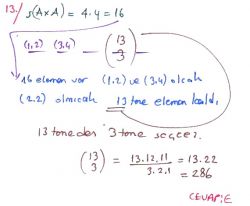 13./ s(A×A) = 4.4 = 16
(1,2) (3,4) — (13 3)
16 eleman var (1,2) ve (3,4) olcak
(2,2) olmıcak 13 tane eleman kaldı.
13 taneden 3 tane seçeriz.
(13 3) = 13.12.11 / 3.2.1 = 13.22
= 286
CEVAP: E